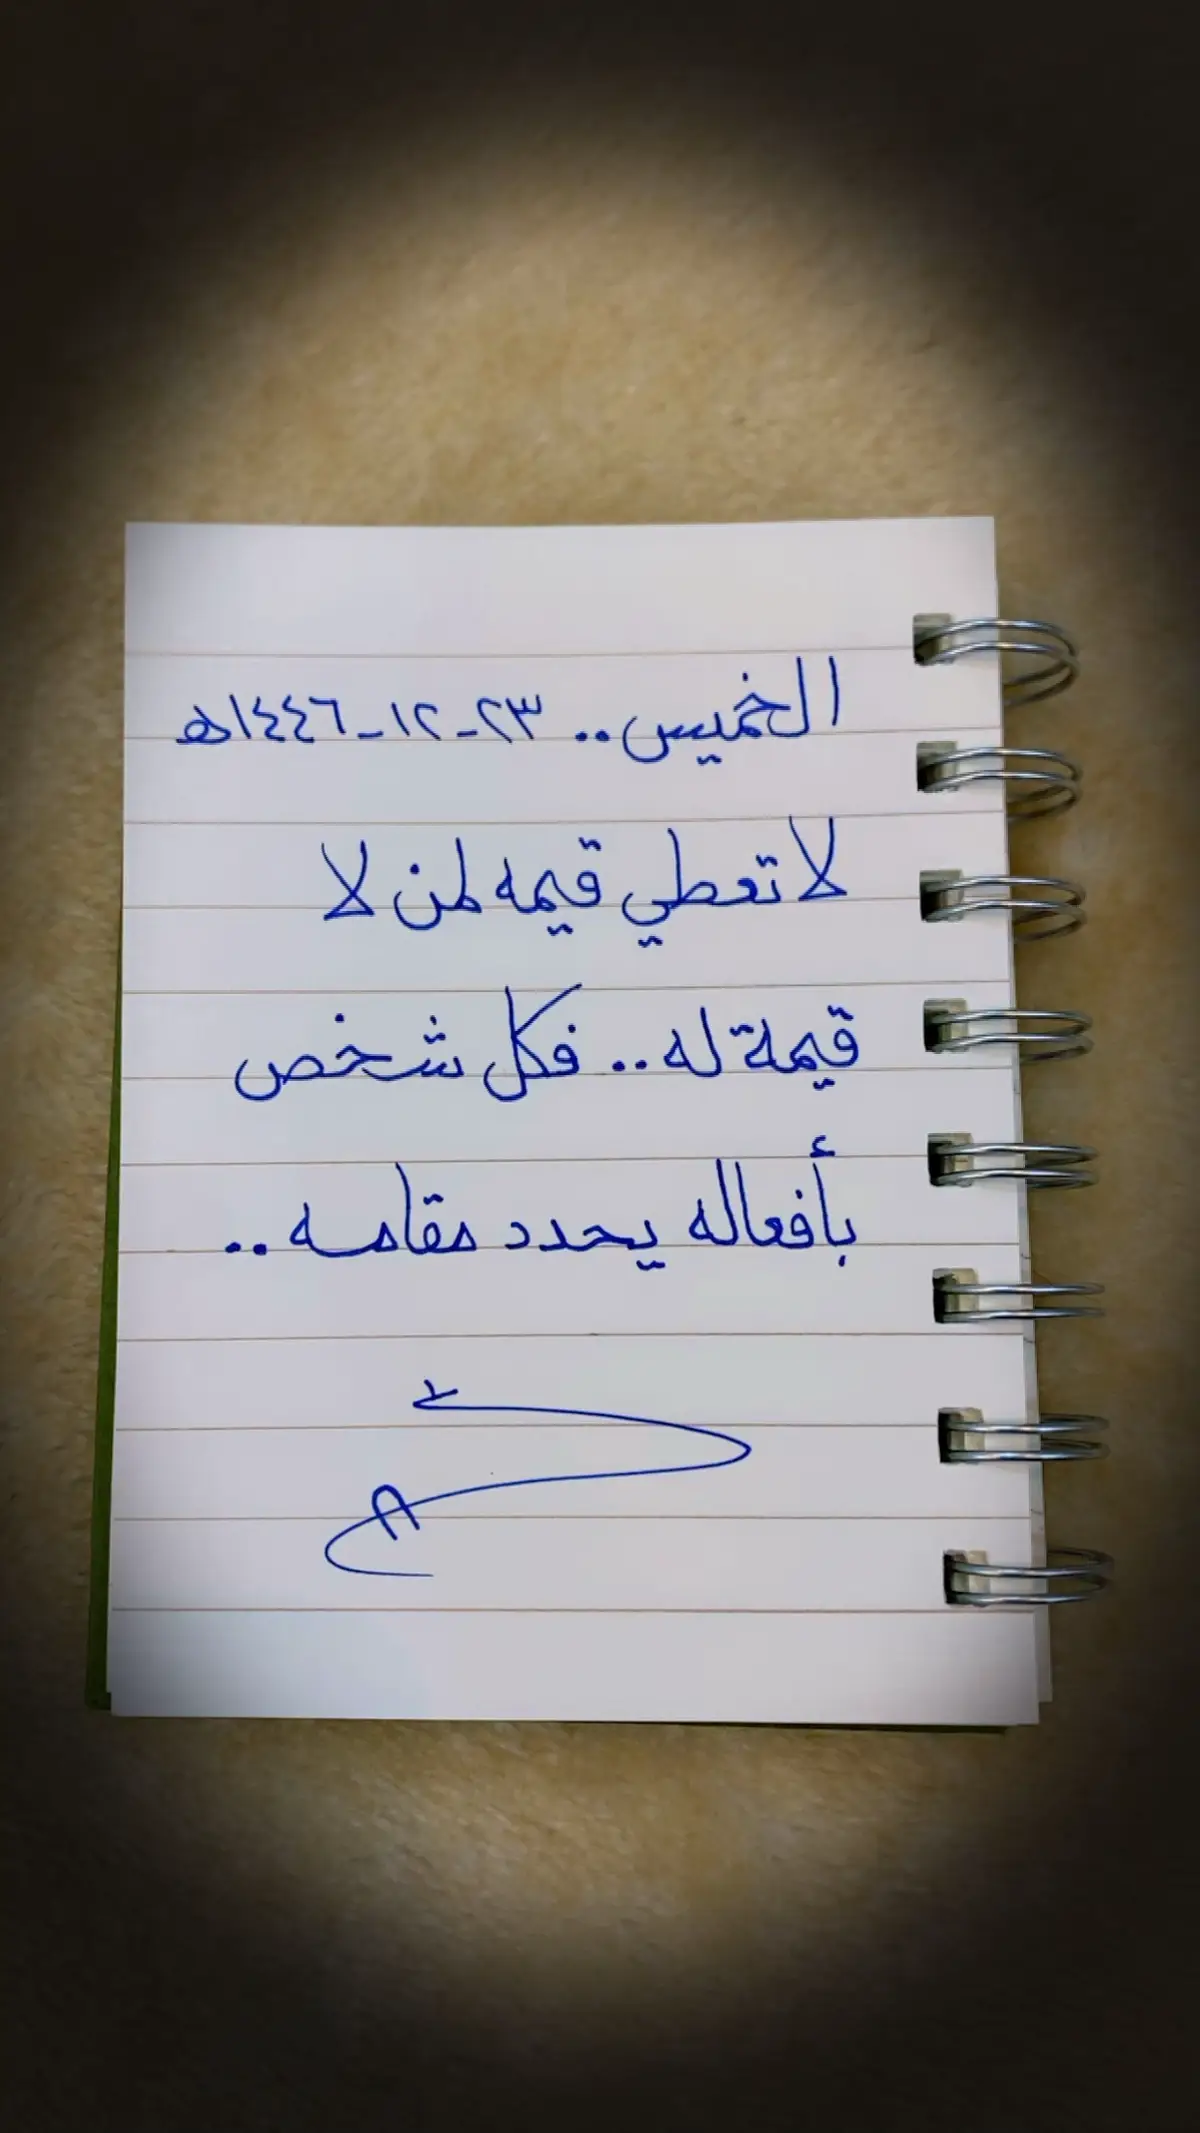 الخميس.. ٢٣-١٢-١٤٤٦هـ
لا تعطي قيمه لمن لا
قيمة له.. فكل شخص
بأفعاله يحدد مقامه..